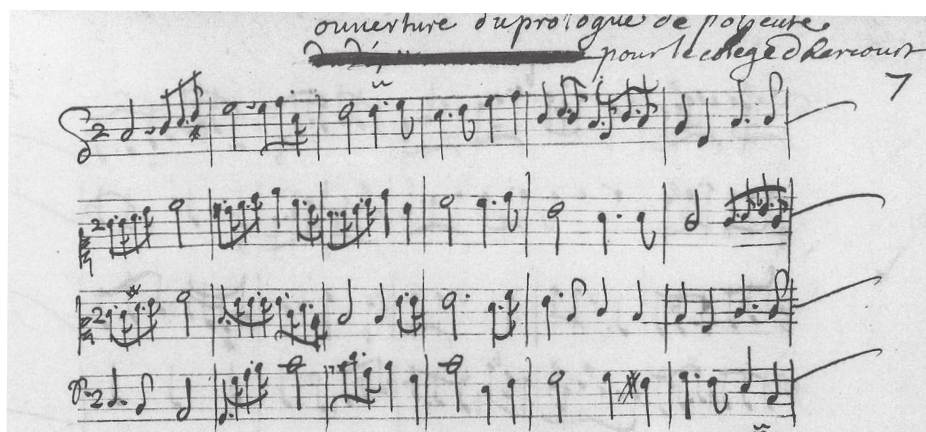 ouverture du prologue de polieucte
pour le colege d harcourt
7
2
2
2
2